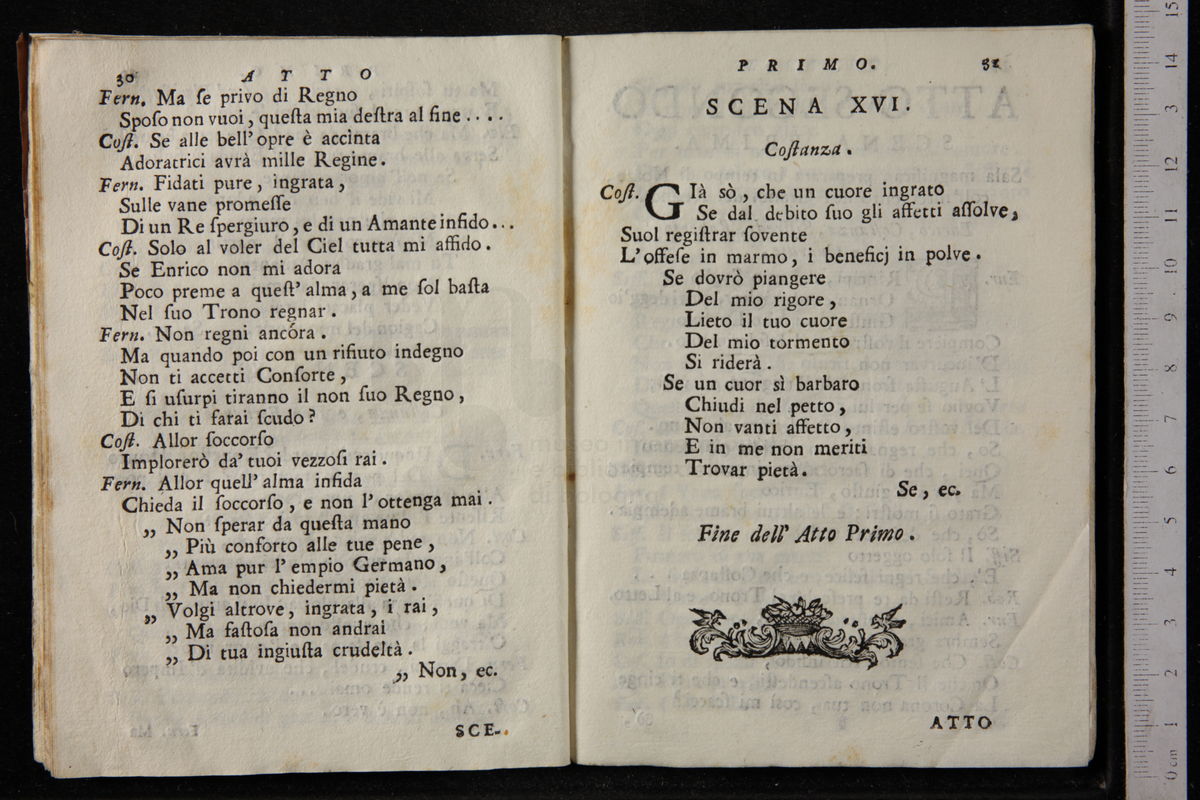 30 ATTO
Fern. Ma ſe privo di Regno
Spoſo non vuoi, queſta mia deſtra al fine ....
Coſt. Se alle bell' opre è accinta
Adoratrici avrà mille Regine.
Fern. Fidati pure, ingrata,
Sulle vane promeſſe
Di un Re ſpergiuro, e di un Amante infido...
Coſt. Solo al voler del Ciel tutta mi affido.
Se Enrico non mi adora
Poco preme a queſt' alma, a me ſol baſta
Nel ſuo Trono regnar.
Fern. Non regni ancóra.
Ma quando poi con un rifiuto indegno
Non ti accetti Conſorte,
E ſi uſurpi tiranno il non ſuo Regno,
Di chi ti farai ſcudo?
Coſt. Allor ſoccorſo
Implorerò da' tuoi vezzoſi rai.
Fern. Allor quell' alma infida
Chieda il ſoccorſo, e non l' ottenga mai.
„ Non ſperar da queſta mano
„ Più conforto alle tue pene,
„ Ama pur l' empio Germano,
„ Ma non chiedermi pietà.
„ Volgi altrove, ingrata, i rai,
„ Ma faſtoſa non andrai
„ Di tua ingiuſta crudeltà.
„ Non, ec.
SCE-
PRIMO. 31
SCENA XVI.
Coſtanza.
Coſt. GIà sò, che un cuore ingrato
Se dal debito ſuo gli affetti aſſolve,
Suol regiſtrar ſovente
L'offeſe in marmo, i beneficj in polve.
Se dovrò piangere
Del mio rigore,
Lieto il tuo cuore
Del mio tormento
Si riderà.
Se un cuor sì barbaro
Chiudi nel petto,
Non vanti affetto,
E in me non meriti
Trovar pietà.
Se, ec.
Fine dell' Atto Primo.
ATTO